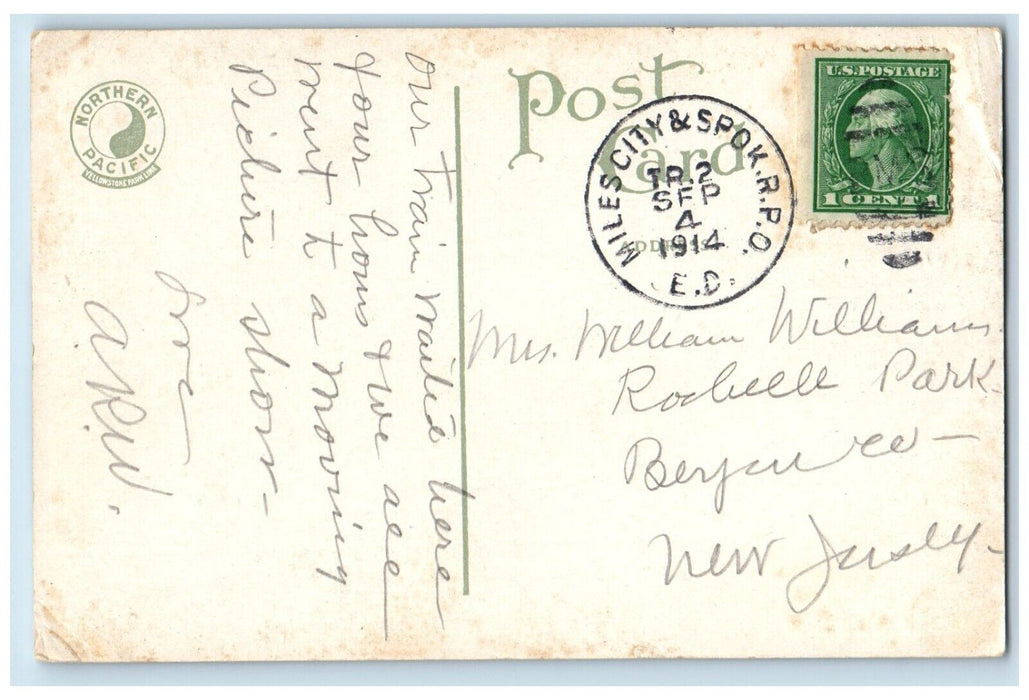 NORTHERN PACIFIC
YELLOWSTONE PARK LINE
Our train waited here
4 our hours & we all
went to a moving
Picture show—
Love
A.R.W.
Post
Card
ADDRESS
U.S. POSTAGE
1 CENT
MILES CITY & SPOK. R.P.O.
TR. 2
SEP
4
1914
E.D.
Mrs. William Williams.
Rochelle Park—
Bergen Co—
New Jersey—